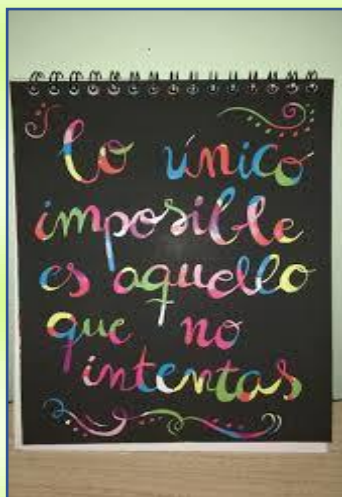 lo único
imposible
es aquello
que no
intentas